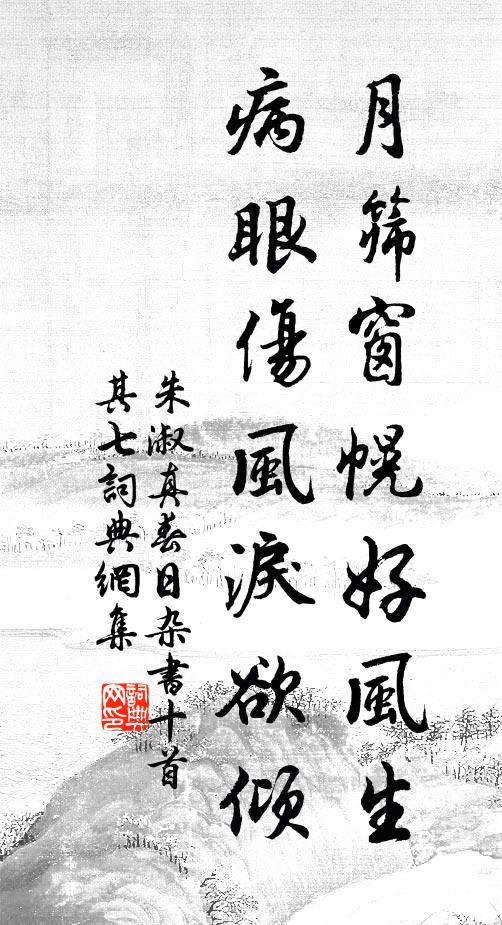 月篩窗幌好風生
病眼傷風淚欲傾
朱淑真春日杂書十首
其七詞典網集
詞典网印